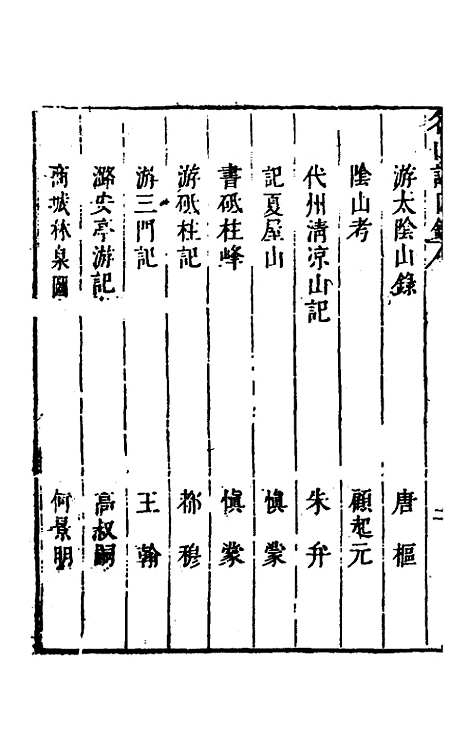 名山記目錄
二
游太陰山錄 唐樞
陰山考 顧起元
代州清涼山記 朱弁
記夏屋山 慎蒙
書砥柱峰 慎蒙
游砥柱記 都穆
游三門記 王翰
潞安亭游記 高叔嗣
商城林泉圖 何景明